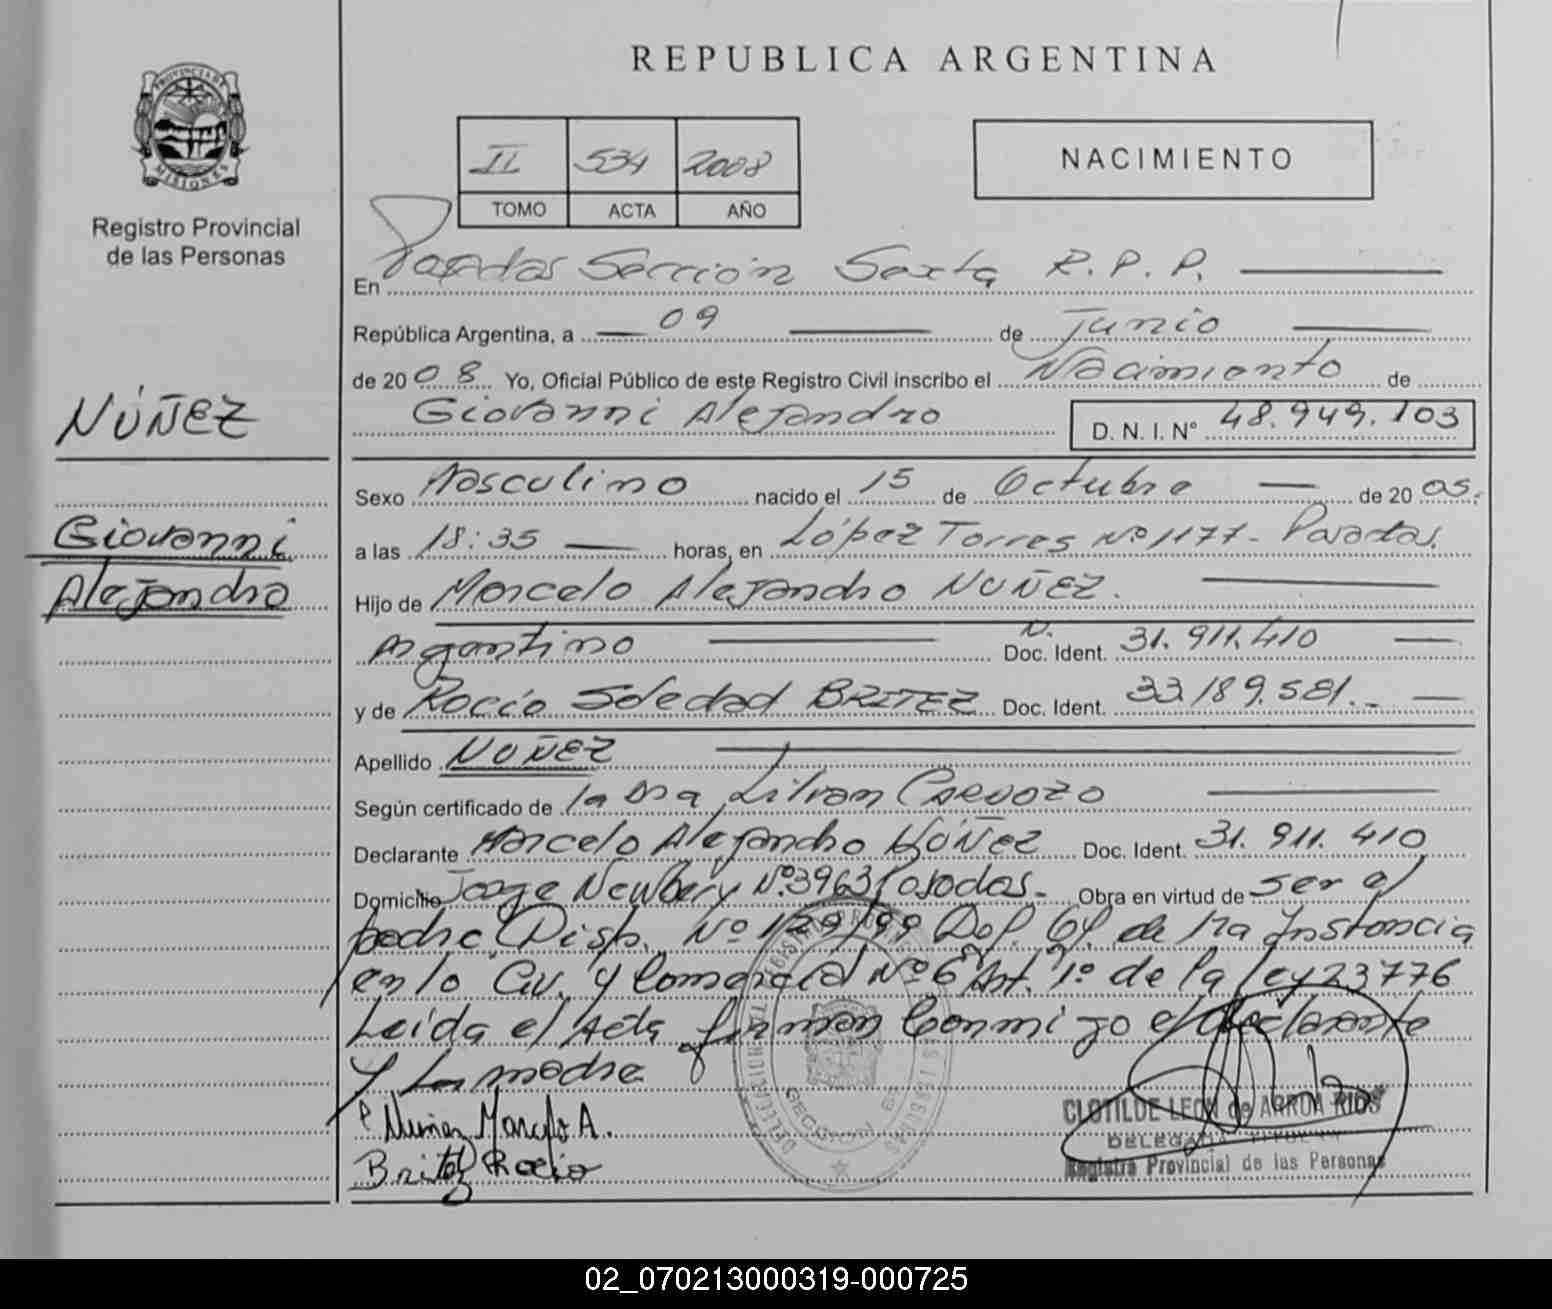 REPUBLICA ARGENTINA
PROVINCIA DE
MISIONES
Registro Provincial
de las Personas
II 534 2008
TOMO ACTA AÑO
NACIMIENTO
En Posadas Sección Sexta R.P.P.
República Argentina, a 09 de Junio
de 2008 Yo, Oficial Público de este Registro Civil inscribo el Nacimiento de
Giovanni Alejandro D. N. I. N° 48.949.103
NÚÑEZ
Giovanni
Alejandro
Sexo Masculino nacido el 15 de Octubre de 2005.
a las 18:35 horas, en López Torres Nº 1177- Posadas.
Hijo de Marcelo Alejandro NUÑEZ.
Argentino Doc. Ident. 31.911.410
y de Rocío Soledad BRITEZ Doc. Ident. 33.189.581.-
Apellido NUÑEZ
Según certificado de la Dra Lilian Cardozo
Declarante Marcelo Alejandro NÚÑEZ Doc. Ident. 31.911.410
Domicilio Jorge Newbery Nº 3963 Posadas- Obra en virtud de ser el
padre Disp. Nº 129/99 de 1ra Instancia
en lo Civ. y Comercial Nº 6 Art. 1º de la ley 23776
Leída el Acta firman Conmigo el declarante
y la madre
Nuñez Marcelo A.
Britez Rocio
CLOTILDE LEON de ARRUA RIOS
DELEGADA TITULAR
Registro Provincial de las Personas
02_070213000319-000725